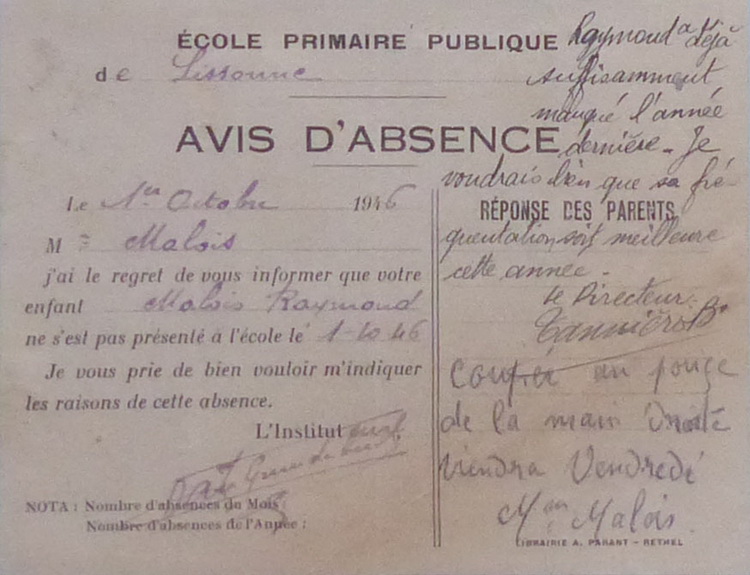 ÉCOLE PRIMAIRE PUBLIQUE
de Lissonne
AVIS D'ABSENCE
Le 1er Octobre 1946
M Malois
j'ai le regret de vous informer que votre
enfant Malois Raymond
ne s'est pas présenté à l'école le 1-10-46
Je vous prie de bien vouloir m'indiquer
les raisons de cette absence.
L'Institut
NOTA : Nombre d'absences du Mois
Nombre d'absences de l'Année :
Raymond a déjà
suffisamment
manqué l'année
dernière. Je
voudrais bien que sa fré-
RÉPONSE DES PARENTS
quentation soit meilleure
cette année.
Le Directeur.
Coupé au pouce
de la main droite
viendra Vendredi
Mme Malois.
LIBRAIRIE A. PARANT - RETHEL